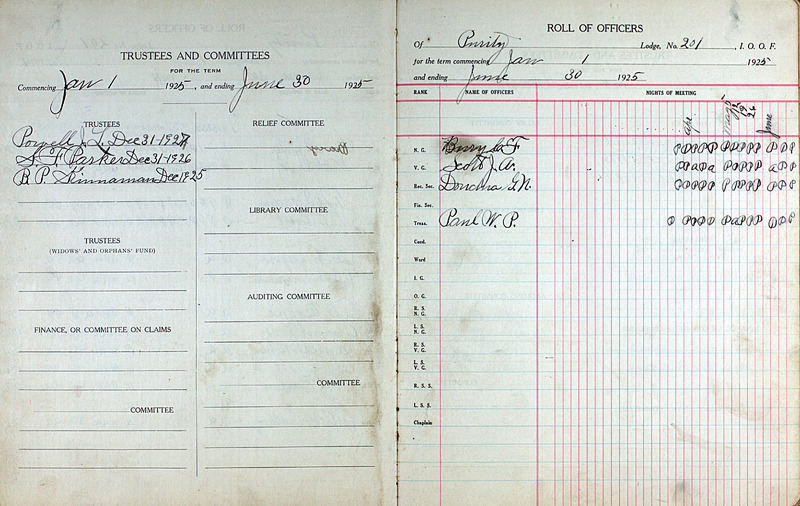 TRUSTEES AND COMMITTEES
FOR THE TERM
Commencing Jan 1 1925, and ending June 30 1925
TRUSTEES
Powell J. L. Dec 31-1927
S. F. Parker Dec 31-1926
B. P. Skinnaman Dec 1925
TRUSTEES
(WIDOWS' AND ORPHANS' FUND)
FINANCE, OR COMMITTEE ON CLAIMS
COMMITTEE
RELIEF COMMITTEE
LIBRARY COMMITTEE
AUDITING COMMITTEE
COMMITTEE
ROLL OF OFFICERS
Of Purity Lodge, No. 201, I. O. O. F.
for the term commencing Jan 1 1925
and ending June 30 1925
RANK NAME OF OFFICERS NIGHTS OF MEETING
Apr May 5 12 19 26 June
N. G. Berry S. F. P P P P P P P P P P P P P
V. G. Scott J. A. P P a P a P P P P P a P P
Rec. Sec. P P P P P P P P P P P P P
Fin. Sec.
Treas. Paul W. P. P P P P P P a P P P P P P
Cond.
Ward
I. G.
O. G.
R. S.
N. G.
L. S.
N. G.
R. S.
V. G.
L. S.
V. G.
R. S. S.
L. S. S.
Chaplain